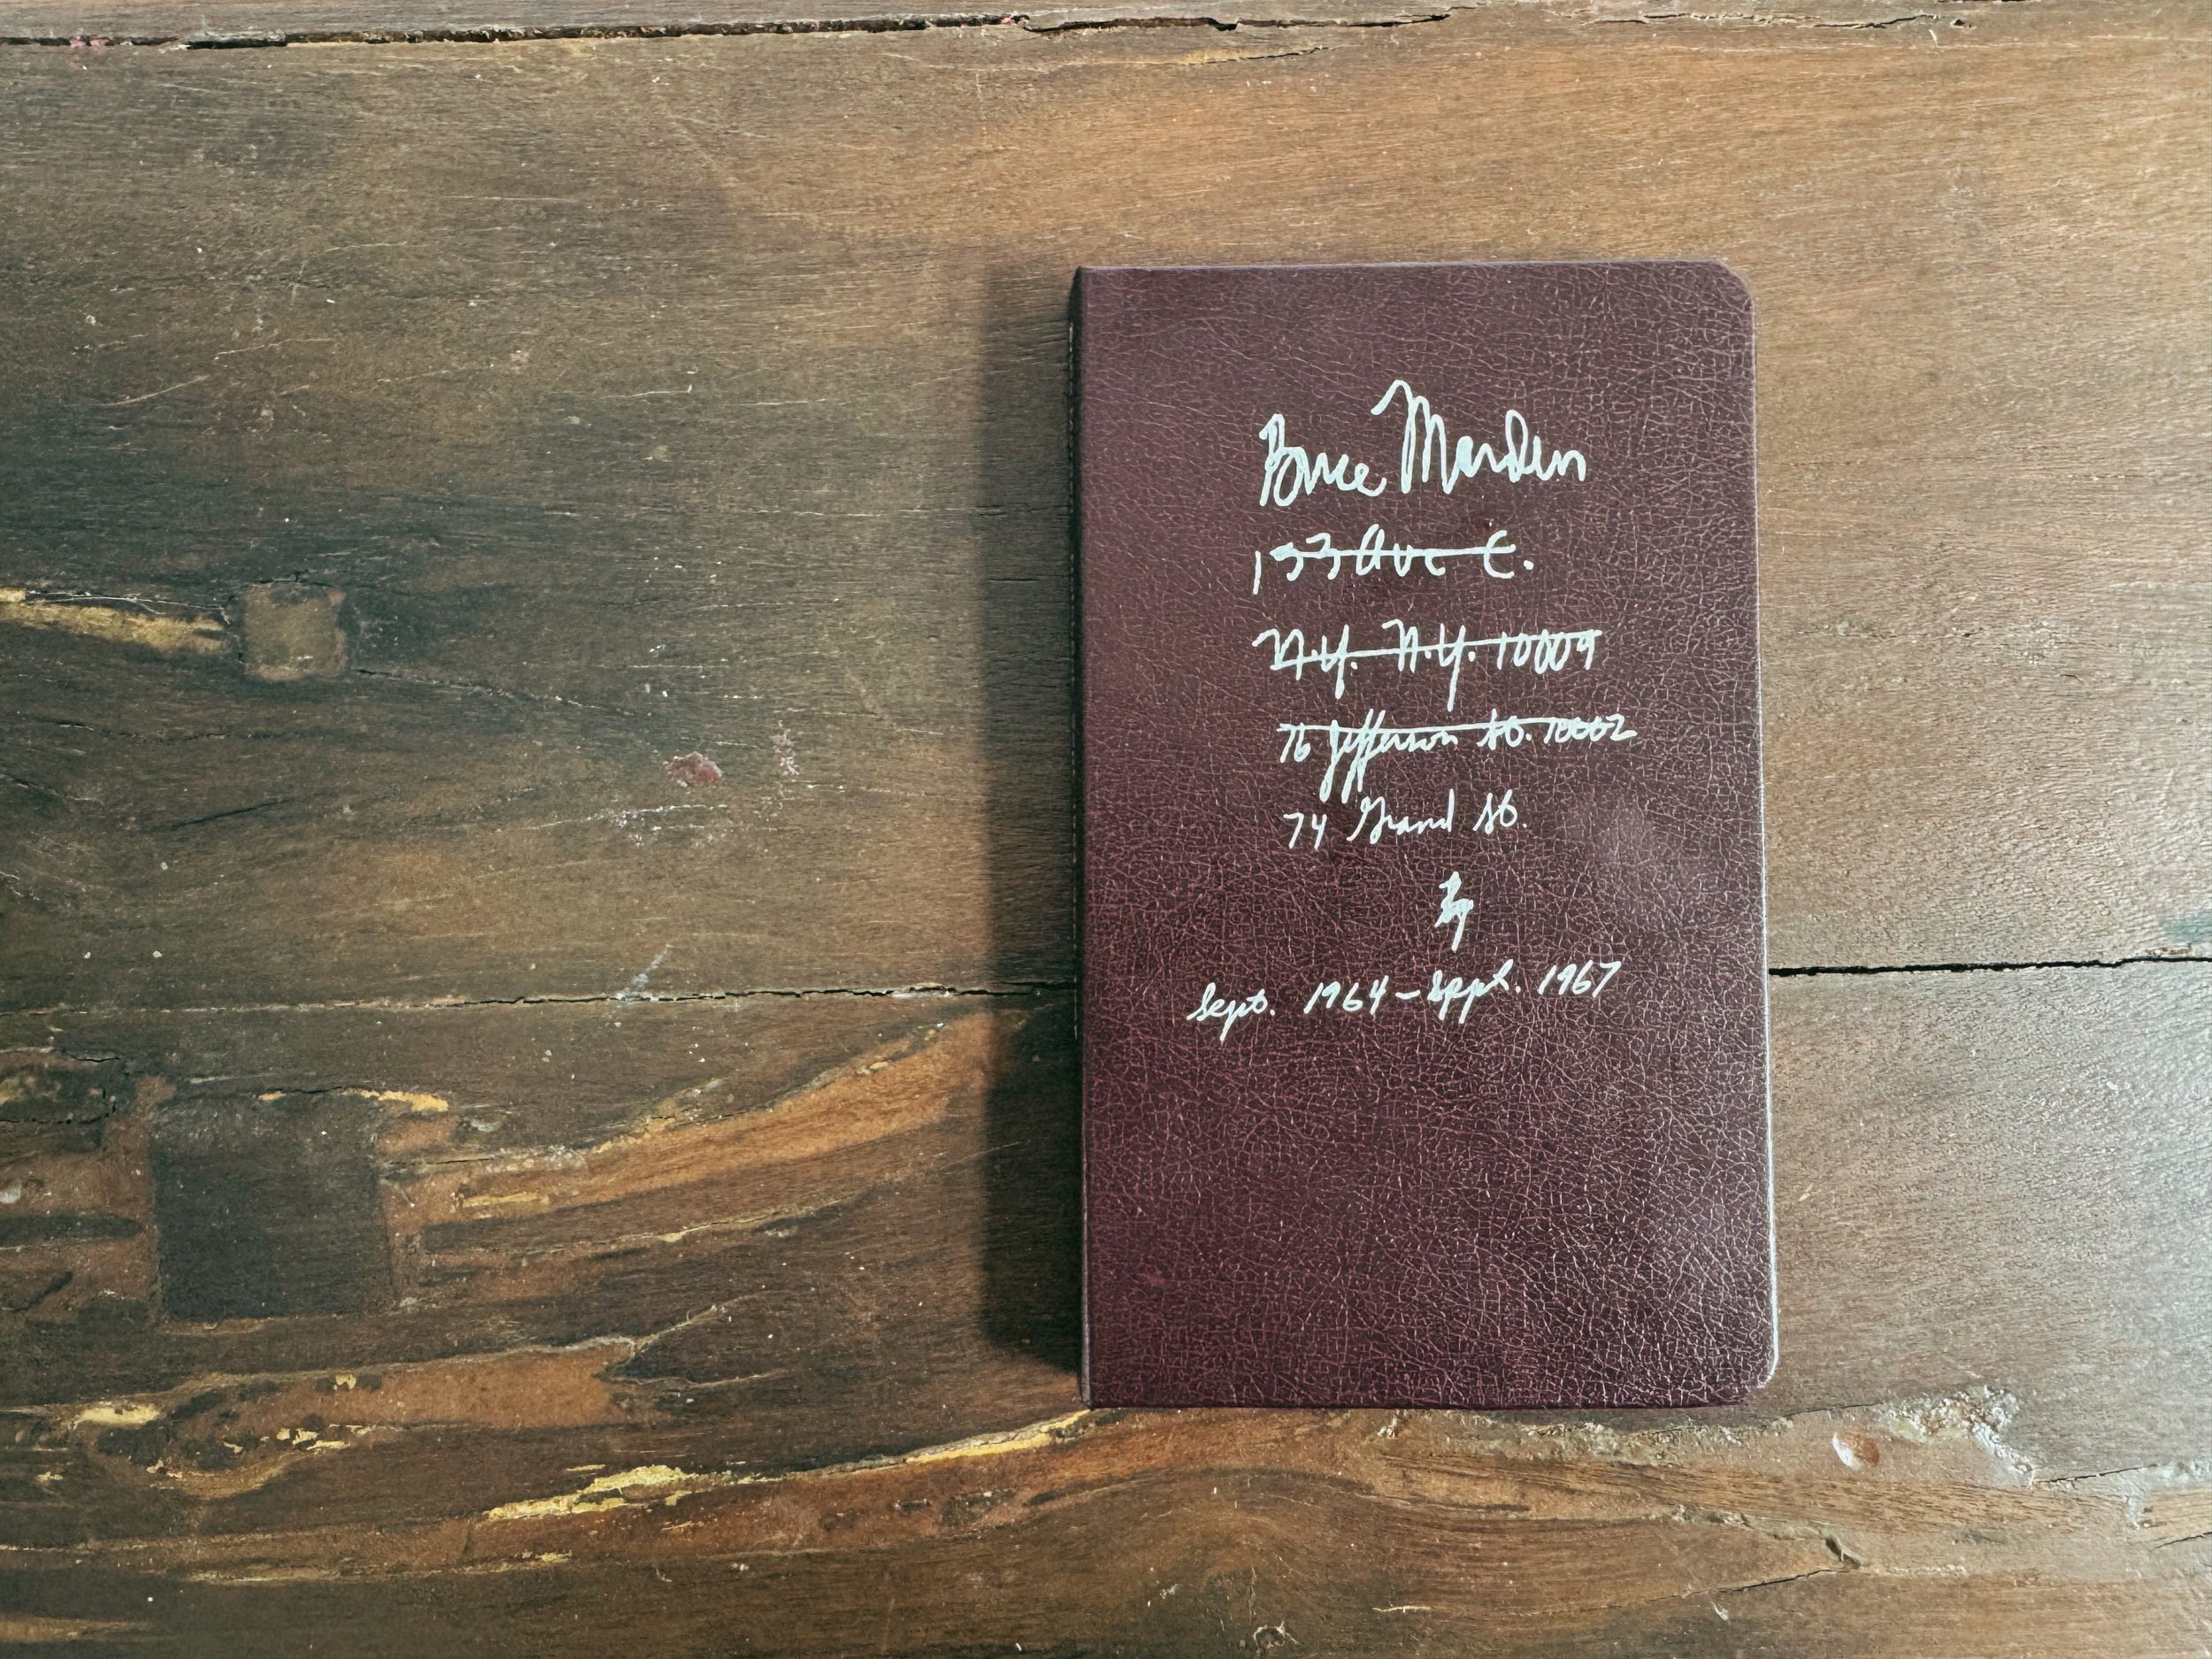 Brice Marden
133 Ave C.
N.Y. N.Y. 10009
76 Jefferson St. 10002
74 Grand St.
Sept. 1964 – Sept. 1967